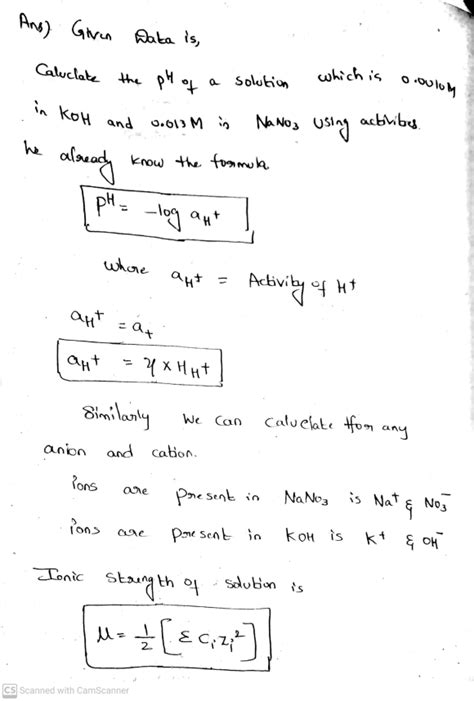 Ans) Given Data is,
Caluclate the pH of a solution which is 0.0010M
in KOH and 0.013M in NaNO3 using activities.
he already know the formula
pH = -log aH+
where aH+ = Activity of H+
aH+ = a+
aH+ = γ × HH+
Similarly we can caluclate for any
anion and cation.
ions are present in NaNO3 is Na+ & NO3-
ions are present in KOH is K+ & OH-
Ionic strength of solution is
μ = 1/2 [Σ CiZi²]
CS Scanned with CamScanner